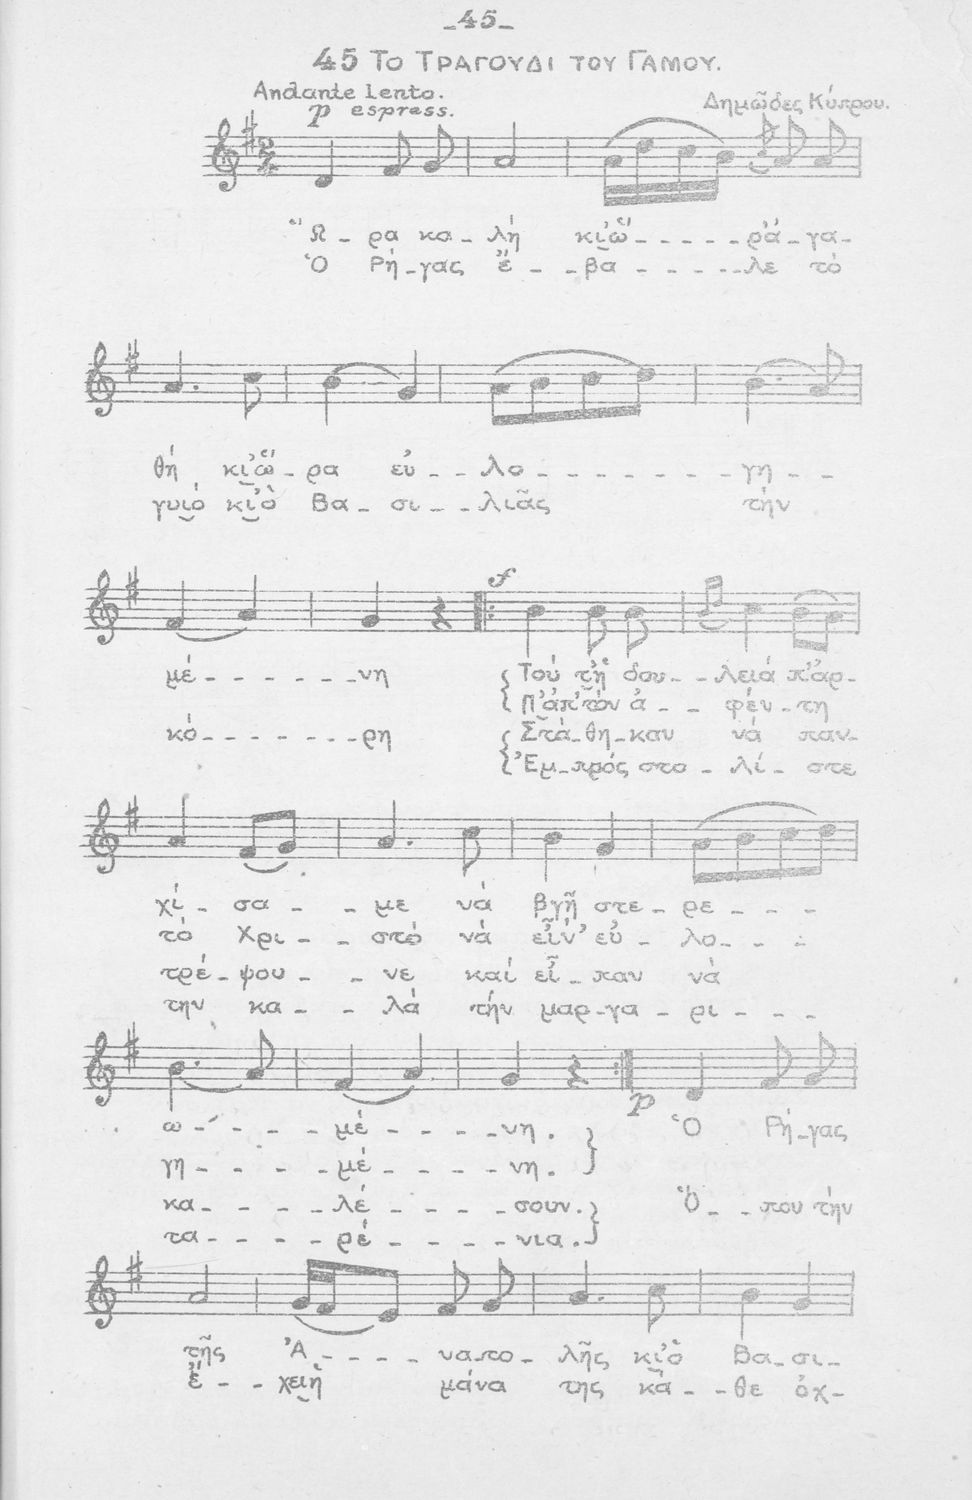 _45_
45 ΤΟ ΤΡΑΓΟΥΔΙ ΤΟΥ ΓΑΜΟΥ.
Andante lento.
p espress.
Δημῶδες Κύπρου.
Ὥ - ρα κα - λή κι᾿ὥ - - - - - ρ᾿ἀ - γα -
Ὁ Ρή - γας ἔ - - βα - - - - - λε τὸ
θή κι᾿ὥ - ρα εὐ - - λο - - - - - - - γη - -
γυιό κι᾿ὁ Βα - σι - - λιᾶς τήν
f
μέ - - - - - - - νη { Τού τἠ δου - - λειά π᾿ἀρ -
{ Π᾿ἀπ᾿τὸν ἀ - - φέν - τη
κό - - - - - - - ρη { Στά - θη - καν νά παν -
{ Ἐμ - πρός στο - λί - στε
χί - σα - - με νά βγῆ στε - ρε - - -
τό Χρι - - στό νά εἶν᾿ εὐ - λο - - -
τρέ - ψου - - νε καί εἶ - παν νά
την κα - - λά τήν μαρ - γα - ρι - - -
p
ω - - - - μέ - - - - νη. } Ὁ Ρή - γας
γη - - - - μέ - - - - νη. }
κα - - - - λέ - - - - σουν. } Ὅ - - που τήν
τα - - - - ρέ - - - - νια. }
τῆς Ἀ - - - - να - το - λῆς κι᾿ὁ Βα - σι -
ἔ - - χει ἡ μάνα της κά - - θε ὀχ -